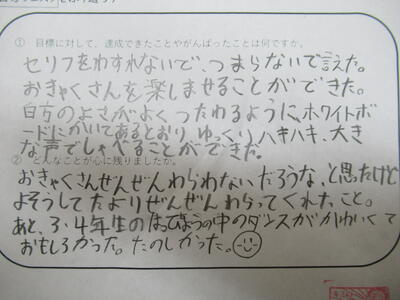 ① 目標に対して、達成できたことやがんばったことは何ですか。
セリフをわすれないで、つまらないで言えた。
おきゃくさんを楽しませることができた。
白方のよさがよくつたわるように、ホワイトボ
ードにかいてあるとおり、ゆっくり、ハキハキ、大き
な声でしゃべることができた。
② どんなことが心に残りましたか。
おきゃくさんぜんぜんわらわないだろうな、と思たけど
よそうしてたよりぜんぜんわらってくれた、こと。
あと、3・4年生のはっぴょうの中のダンスがかわいくて
おもしろかった。たのしかった。